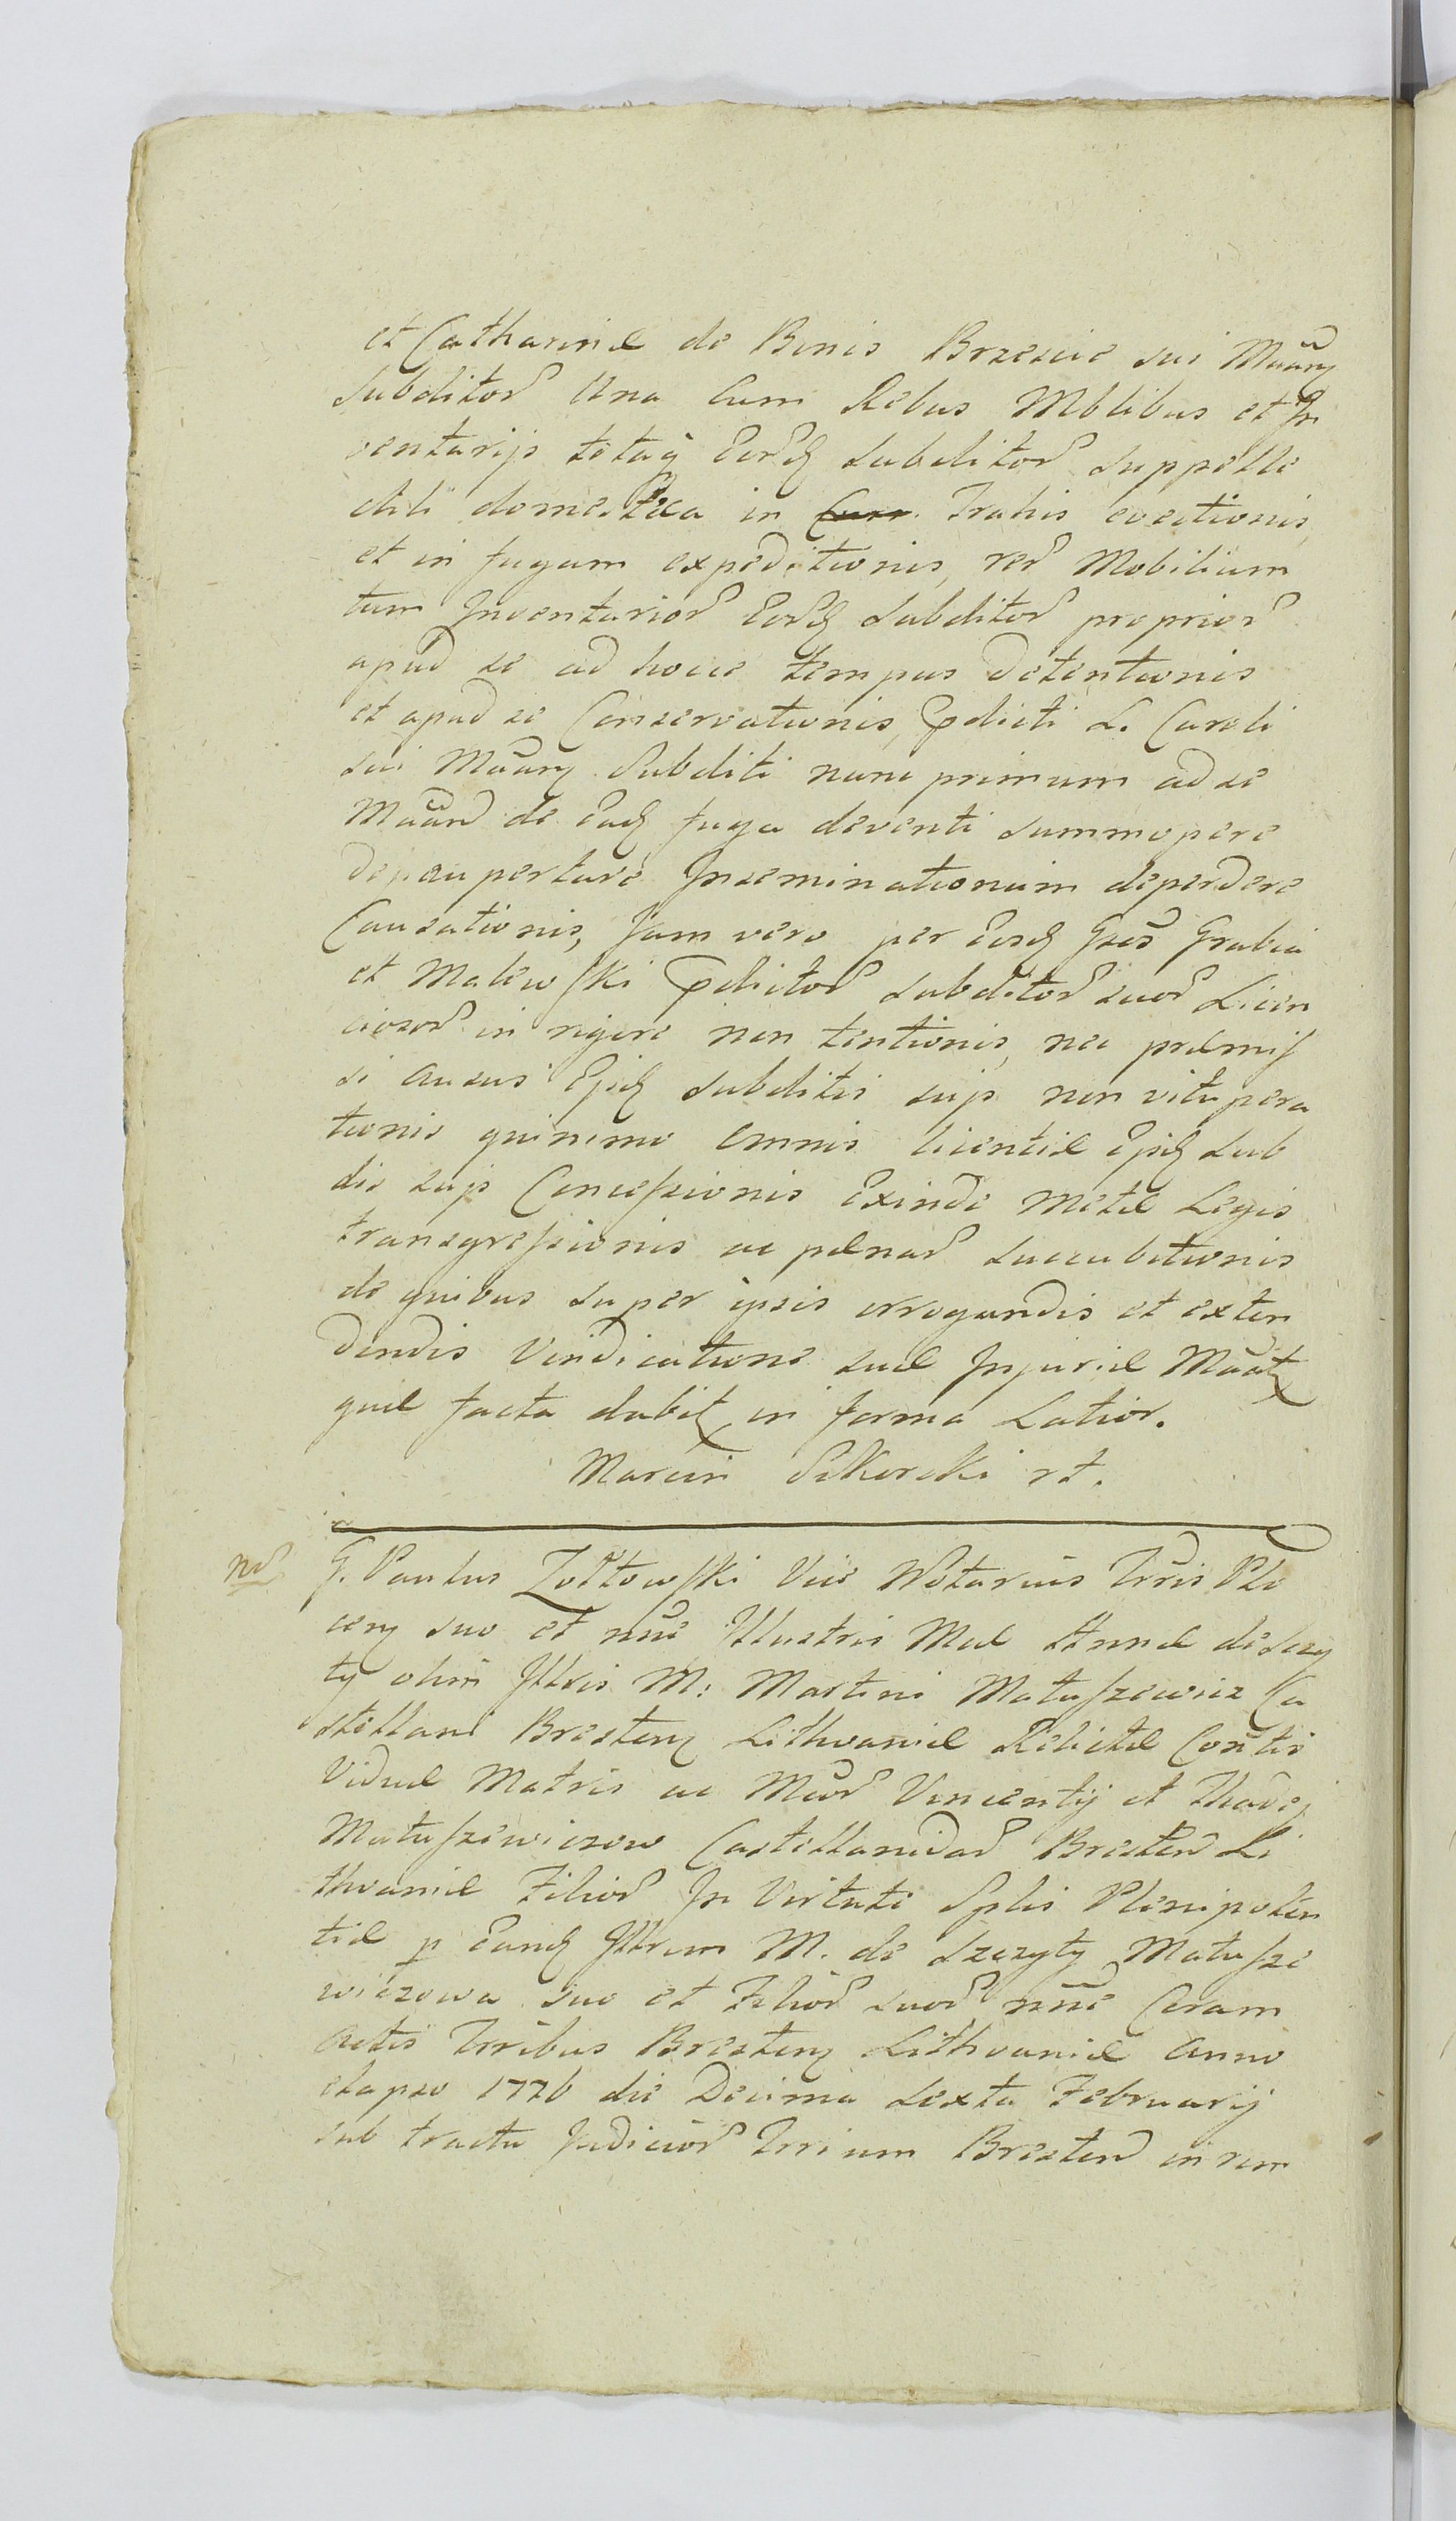 et Catharinæ de Bonis Brzescie sui Muãrꝫ
subditoꝝ Una Cum Rebus Mblibus et In
ventarijs totaq̃ Eorꝝdꝫ subditoꝝ suppelle
ctili domestica in Curr. Trahis evectionis,
et in fugam expeditionis, reꝝ Mobilium
tum Inventarioꝝ Eorꝝdꝫ subditoꝝ proprioꝝ
apud se ad hocce tempus detentionis
et apud se Conservationis, Pdicti L. Caroli
sui Muãrꝫ Subditi nunc primum ad se
Muãnd de Eadꝫ fuga deventi summopere
depaupertare Inseminationum deperdere
Causationis, Jam vero per Eosdꝫ Gsos Grabia
et Malewski Pdictoꝝ subditoꝝ suoꝝ Licen
ciosoꝝ in rigore non tentionis, nec præmis
si ausus Epidꝫ subditis suis non vitupera
tionis quinimo omnis licentiæ Epidꝫ sub
dis suis Concessionis Exinde Metæ Legis
transgressionis ac pænaꝝ succubitionis
de quibus super ipsis irrogandis et exten
dendis Vindicatione suæ Injuriæ Muãtꝫ
quæ facta dabitꝫ in forma Latior.
Marcin Sikorski rt.
nd
G. Paulus Zołtowski Vice Notarius Trris Plo
cenꝫ suo et nñe Illustris Mæ Annæ de Szczy
ty olim Illris M: Martini Matuszewicz Ca
stellani Brestenꝫ Lithvaniæ Relictæ Contis
Viduæ Matris ac Mcoꝝ Vincentij et Thadej
Matuszewiczow Castellanidaꝝ Bresten Li
thvaniæ Filioꝝ In Virtute Splis Plenipoten
tiæ p Eandꝫ Illrem M. de Szczyty Matusze
wiczowa suo et Filioꝝ suoꝝ nñe Coram
Actis Trribus Brestenꝫ Lithvaniæ Anno
elapso 1776 die Decima Sexta Februarij
sub tractu Judicioꝝ Trrium Bresten in rem